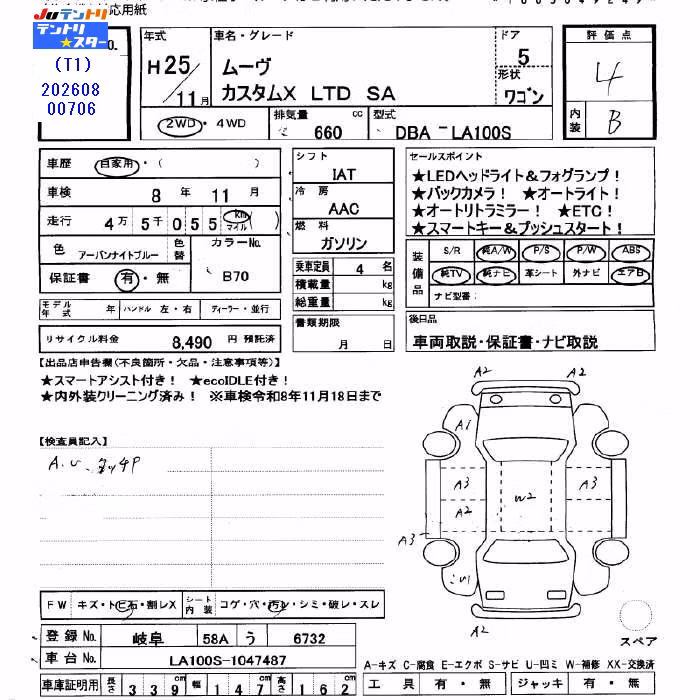 応用紙
JUテントリ
テントリ★スター
(T1)
202608
00706
NO.
年式 H25/11月
車名・グレード
ムーヴ
カスタムX LTD SA
ドア 5
形状 ワゴン
評価点 4
内装 B
2WD・4WD
排気量 660 cc
型式 DBA-LA100S
車歴 自家用・( )
車検 8年 11月
走行 4万5千055 km マイル ( )
色 アーバンナイトブルー 色替
カラーNo. B70
保証書 有・無
シフト IAT
冷房 AAC
燃料 ガソリン
乗車定員 4 名
積載量 kg
総重量 kg
書類期限 月 日
セールスポイント
★LEDヘッドライト&フォグランプ!
★バックカメラ! ★オートライト!
★オートリトラミラー! ★ETC!
★スマートキー&プッシュスタート!
装備品
S/R 純A/W P/S P/W ABS
純TV 純ナビ 革シート 外ナビ エアB
ナビ型番:
モデル年式 年 ハンドル 左・右 ディーラー・並行
リサイクル料金 8,490 円 預託済
後日品
車両取説・保証書・ナビ取説
【出品店申告欄(不良箇所・欠品・注意事項等)】
★スマートアシスト付き! ★ecoIDLE付き!
★内外装クリーニング済み! ※車検令和8年11月18日まで
【検査員記入】
A.U. タッチP
A2 A2
A1
A3 A2 W2 A3
A3
U1
A2
FW キズ・トビ石・割レX
シート内装 コゲ・穴・汚レ・シミ・破レ・スレ
登録No. 岐阜 58A う 6732
車台No. LA100S-1047487
車庫証明用 長さ 339cm 幅 147cm 高さ 162cm
スペア
A-キズ C-腐食 E-エクボ S-サビ U-凹ミ W-補修 XX-交換済
工具 有・無 ジャッキ 有・無